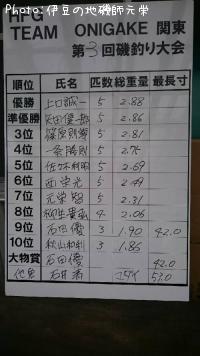 Photo:伊豆の地磯師元学
HFG
TEAM ONIGAKE 関東
第3回磯釣り大会
順位 氏名 匹数 総重量 最長寸
優勝 上口誠一 5 2.88
準優勝 矢田優一郎 5 2.86
3位 篠原則幸 5 2.81
4位 一条勝則 5 2.75
5位 佐々木利明 5 2.69
6位 西栄光 5 2.49
7位 元栄智 5 2.31
8位 柳生 4 2.06
9位 石田優 3 1.90 42.0
10位 秋山和利 3 1.86
大物賞 石田優 42.0
他魚 石井 53.0